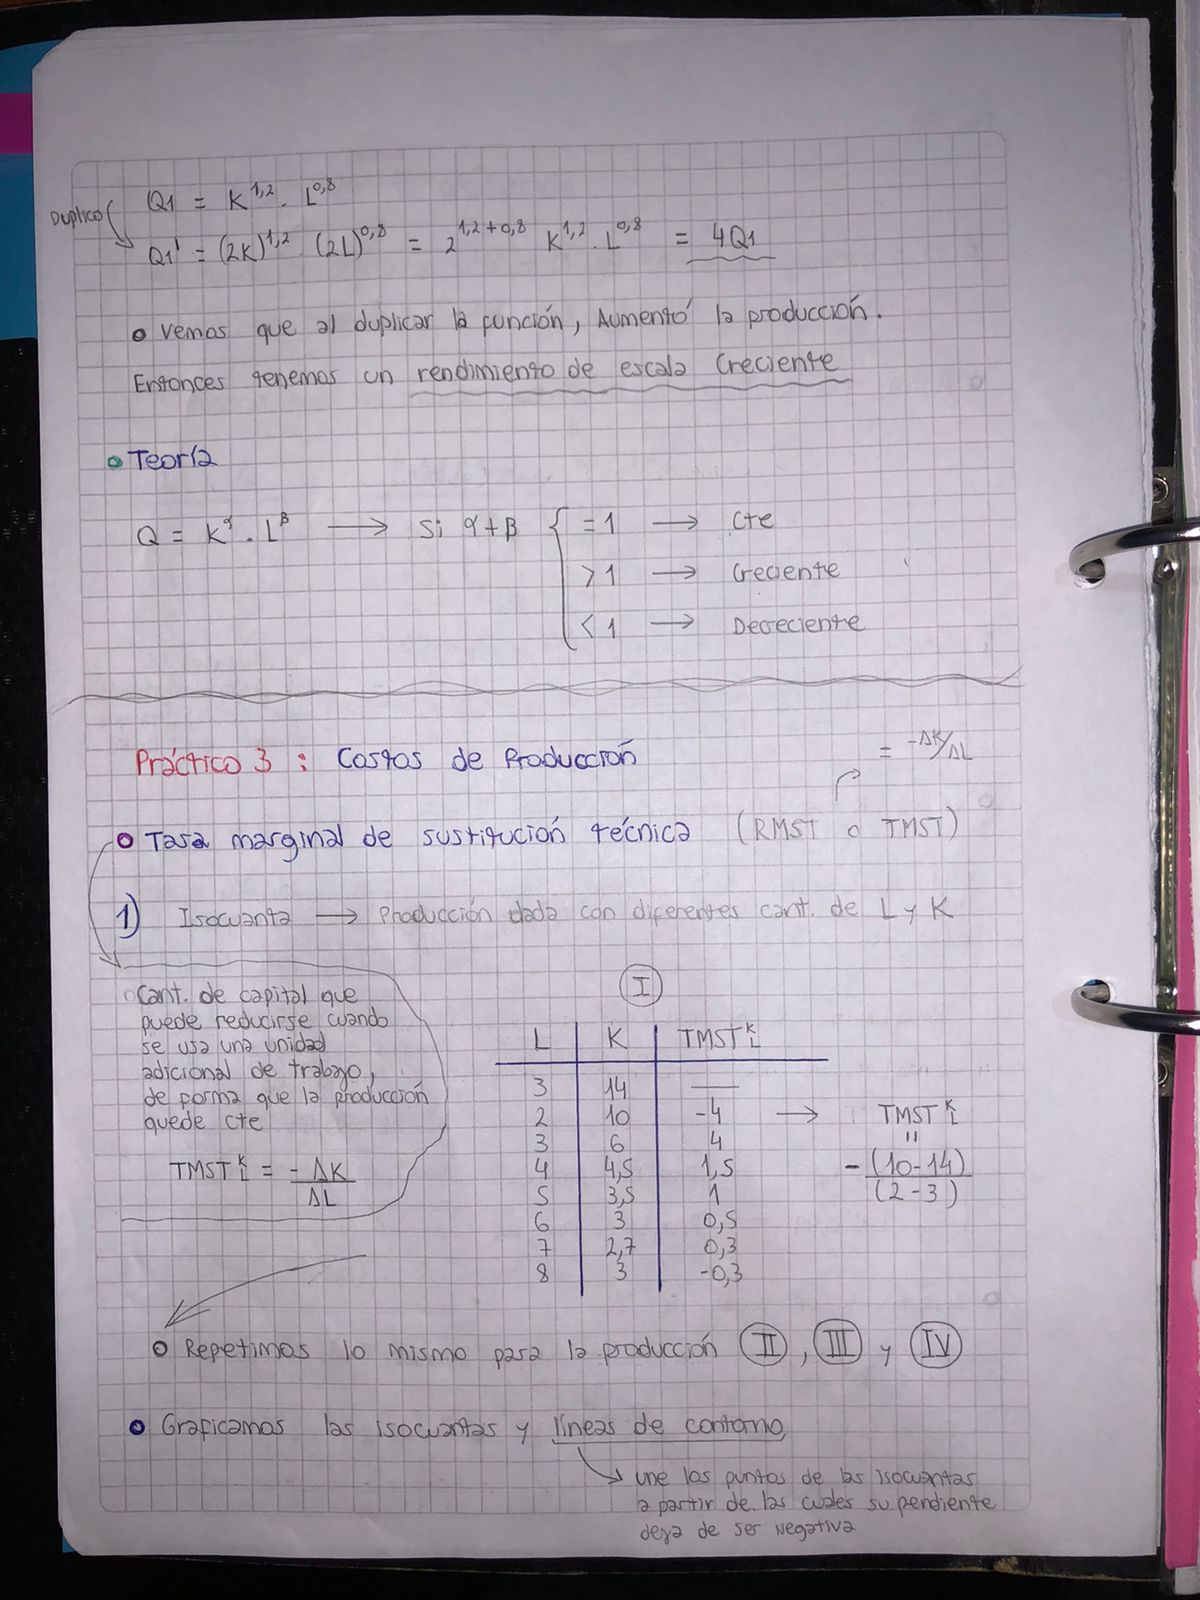 Duplico
Q1 = K^1,2 . L^0,8
Q1' = (2K)^1,2 . (2L)^0,8 = 2^1,2+0,8 K^1,2 . L^0,8 = 4Q1
Vemos que al duplicar la función, Aumentó la producción.
Entonces tenemos un rendimiento de escala Creciente
Teoría
Q = K^α . L^β → Si α+β { = 1 → Cte
> 1 → Creciente
< 1 → Decreciente
Práctico 3 : Costos de Producción
= -ΔK/ΔL
Tasa marginal de sustitución técnica (RMST o TMST)
1) Isocuanta → Producción dada con diferentes cant. de L y K
Cant. de capital que
puede reducirse cuando
se usa una unidad
adicional de trabajo,
de forma que la producción
quede cte
TMST^K_L = -ΔK/ΔL
I
L K TMST^K_L
3 14 —
2 10 -4 → TMST^K_L
3 6 4 =
4 4,5 1,5 -(10-14)
5 3,5 1 (2-3)
6 3 0,5
7 2,7 0,3
8 3 -0,3
Repetimos lo mismo para la producción II, III y IV
Graficamos las isocuantas y líneas de contorno
une los puntos de las isocuantas
a partir de las cuales su pendiente
deja de ser negativa